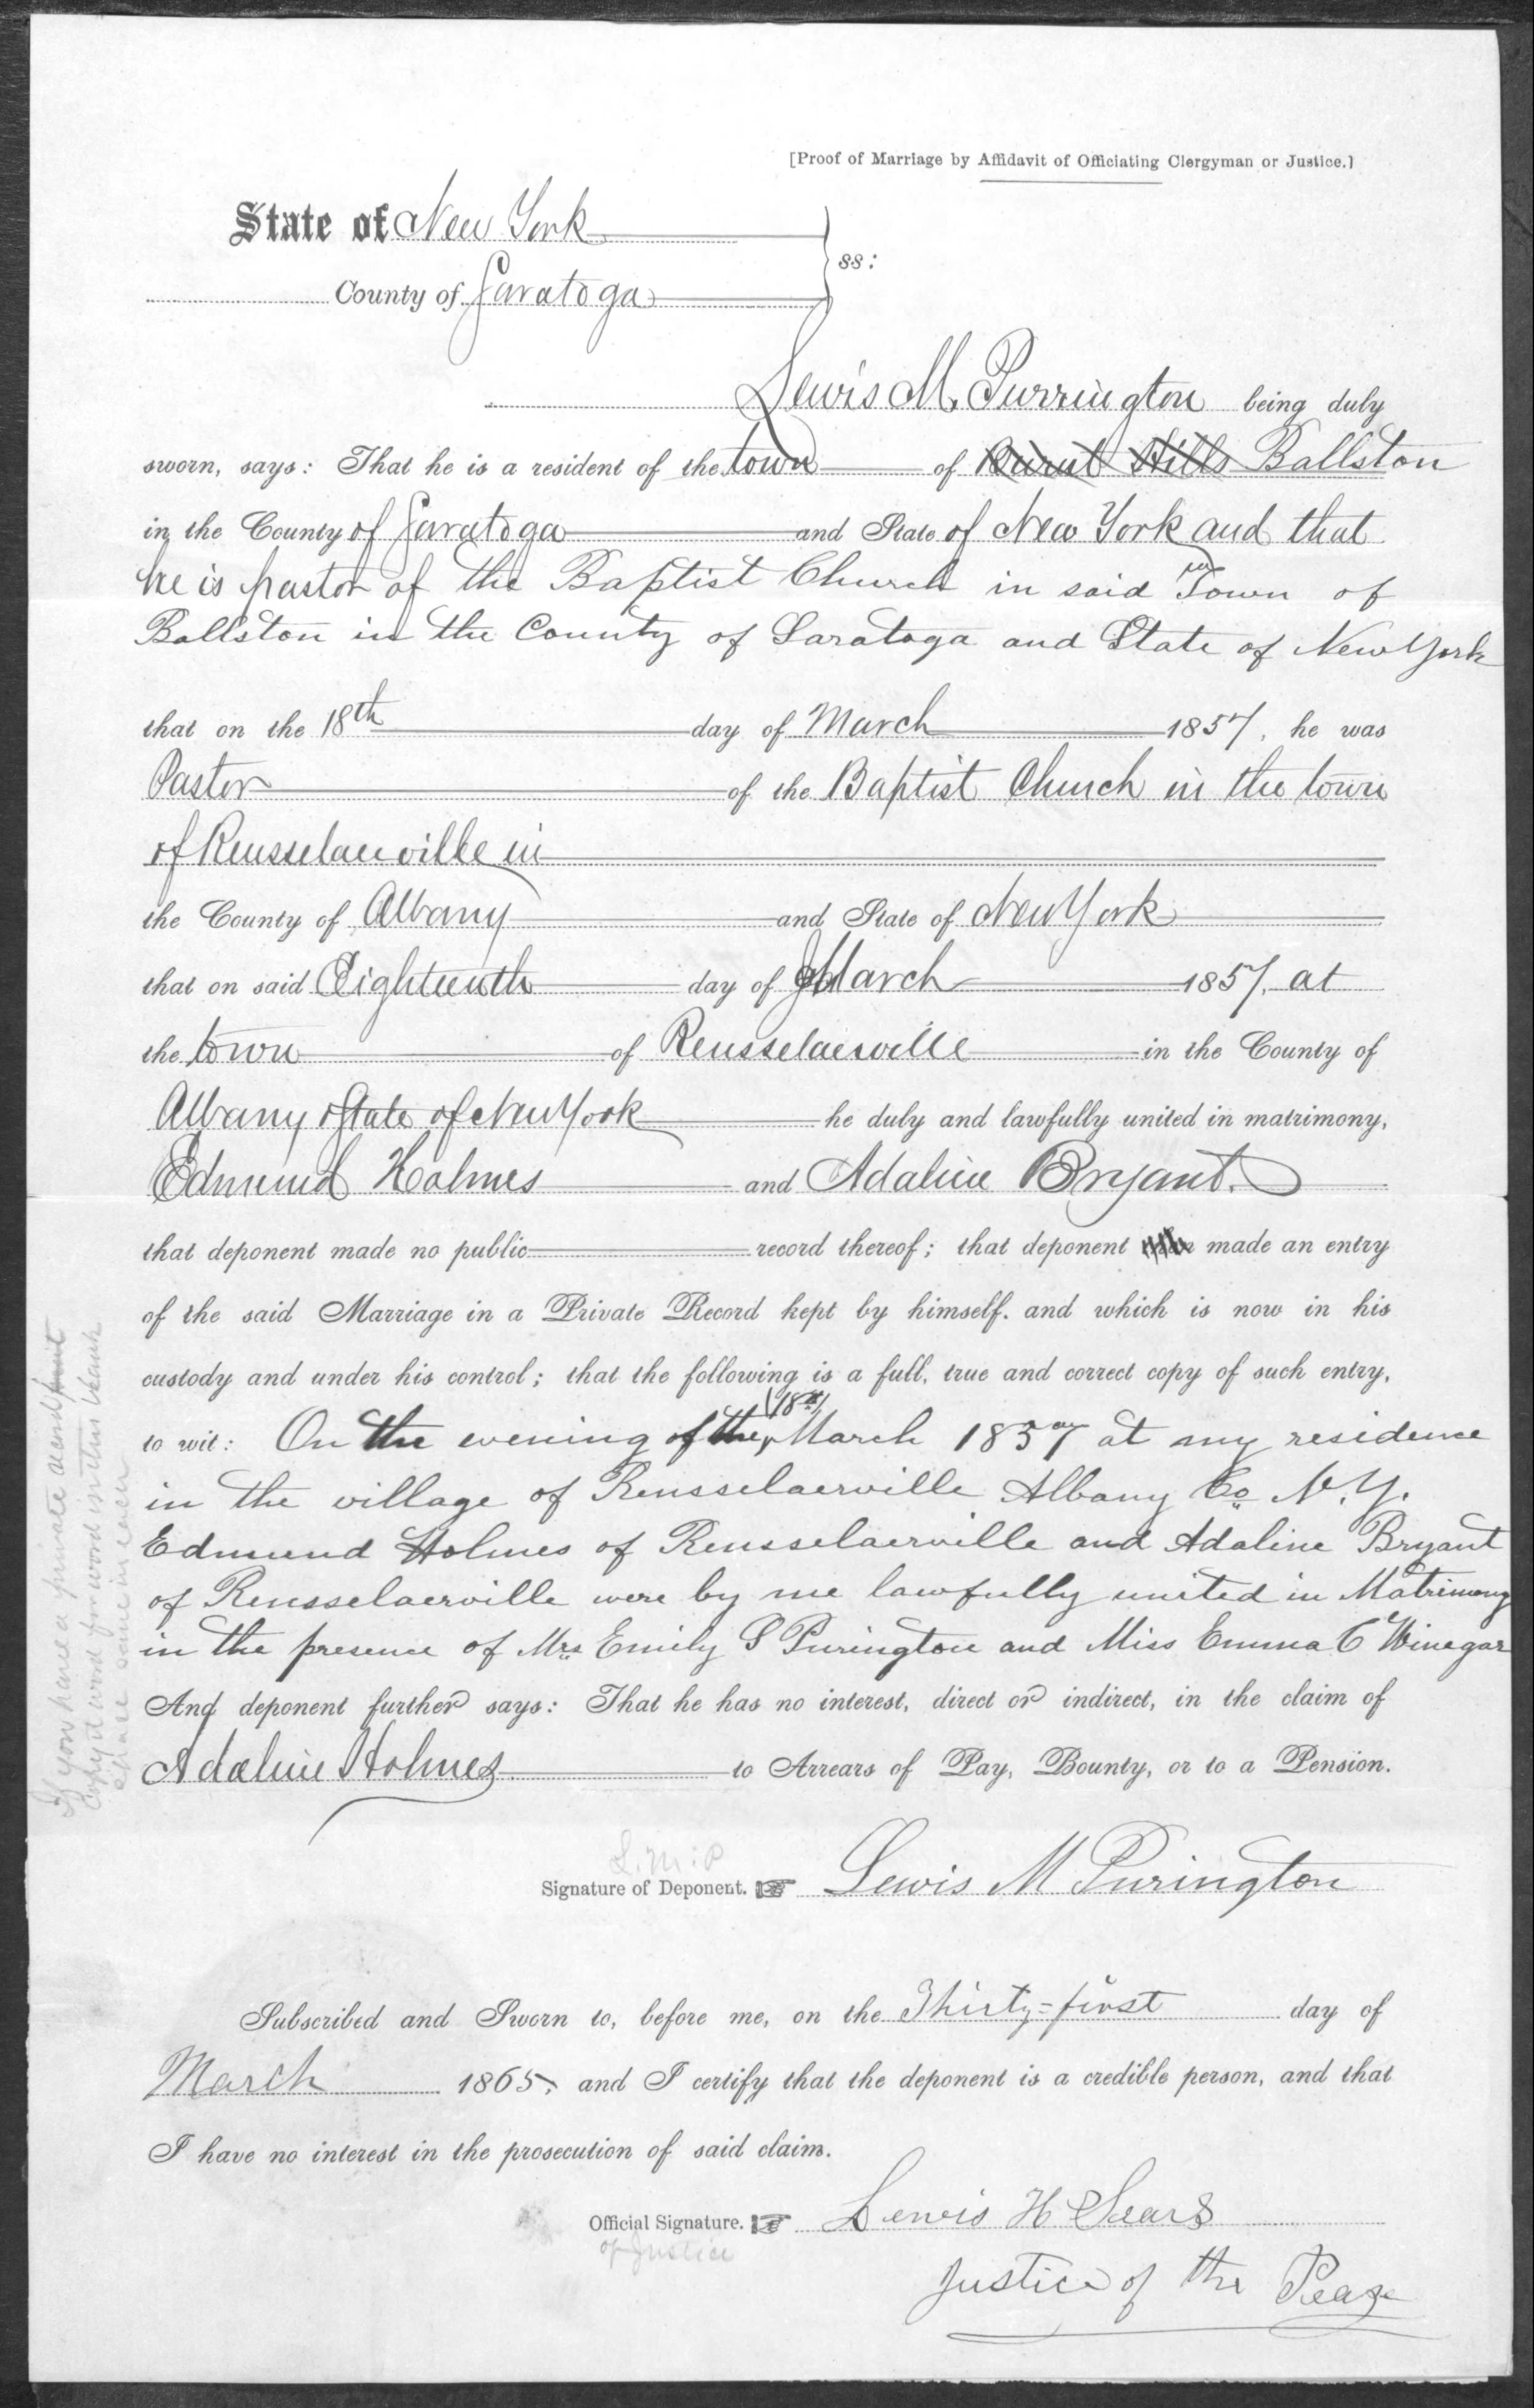 [Proof of Marriage by Affidavit of Officiating Clergyman or Justice.]
State of New York
ss:
County of Saratoga
Lewis M. Purrington being duly
sworn, says: That he is a resident of the town of Burnt Hills Ballston
in the County of Saratoga and State of New York and that
he is pastor of the Baptist Church in said Town of
Ballston in the County of Saratoga and State of New York
that on the 18th day of March 1857, he was
Pastor of the Baptist Church in the town
of Rensselaerville in
the County of Albany and State of New York
that on said Eighteenth day of March 1857, at
the town of Rensselaerville in the County of
Albany State of New York he duly and lawfully united in matrimony,
Edmund Holmes and Adaline Bryant.
that deponent made no public record thereof; that deponent made an entry
of the said Marriage in a Private Record kept by himself. and which is now in his
custody and under his control; that the following is a full, true and correct copy of such entry,
to wit: On the evening of the 18th March 1857 at my residence
in the village of Rensselaerville Albany Co. N.Y.
Edmund Holmes of Rensselaerville and Adaline Bryant
of Rensselaerville were by me lawfully united in Matrimony
in the presence of Mrs Emily S Purington and Miss Emma C Winegar
And deponent further says: That he has no interest, direct or indirect, in the claim of
Adaline Holmes to Arrears of Pay, Bounty, or to a Pension.
If you have a private
Copy it word for word in this blank
space
L. M. P
Signature of Deponent. Lewis M Purington
Subscribed and Sworn to, before me, on the Thirty-first day of
March 1865, and I certify that the deponent is a credible person, and that
I have no interest in the prosecution of said claim.
Official Signature. Lewis H Sears
of Justice
Justice of the Peace